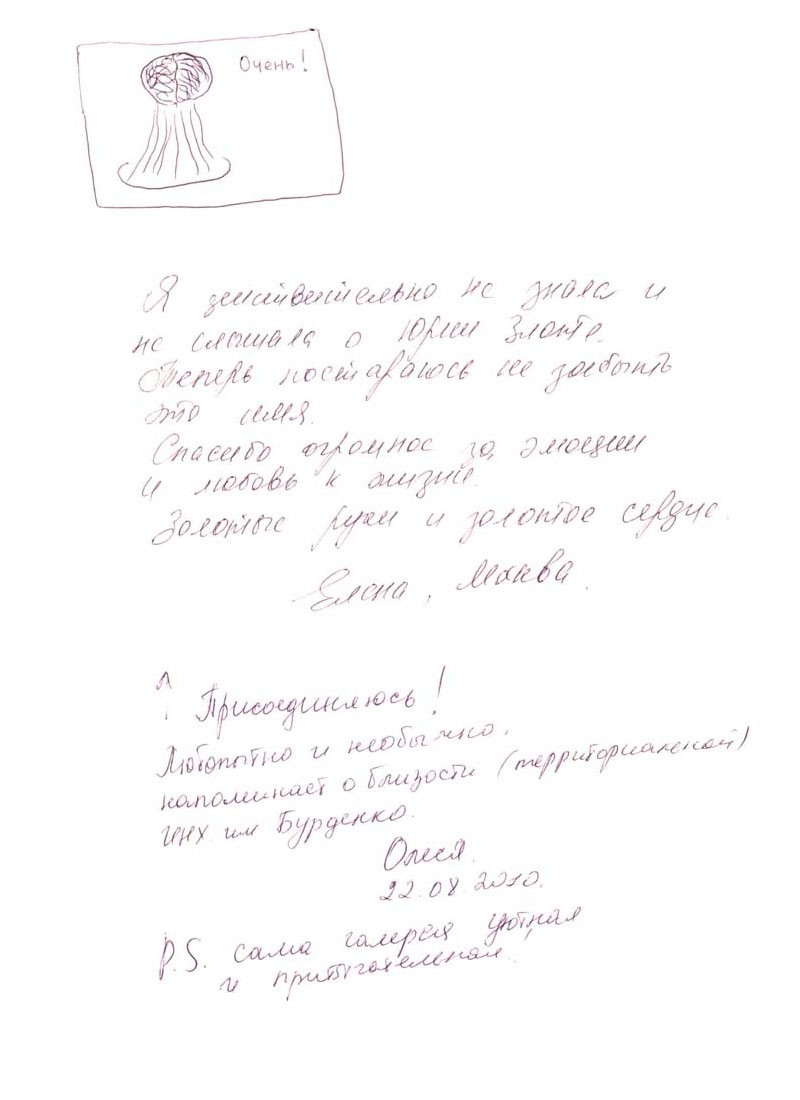 Очень!
Я действительно не знала и
не слышала о Юрии Злоте.
Теперь постараюсь не забыть
это имя.
Спасибо огромное за эмоции
и любовь к жизни.
Золотые руки и золотое сердце.
Елена, Москва.
Присоединяюсь!
Любопытно и необычно,
напоминает о близости (территориальной)
им Бурденко.
Олеся.
22.08.2010.
P.S. сама галерея уютная
и притягательная.